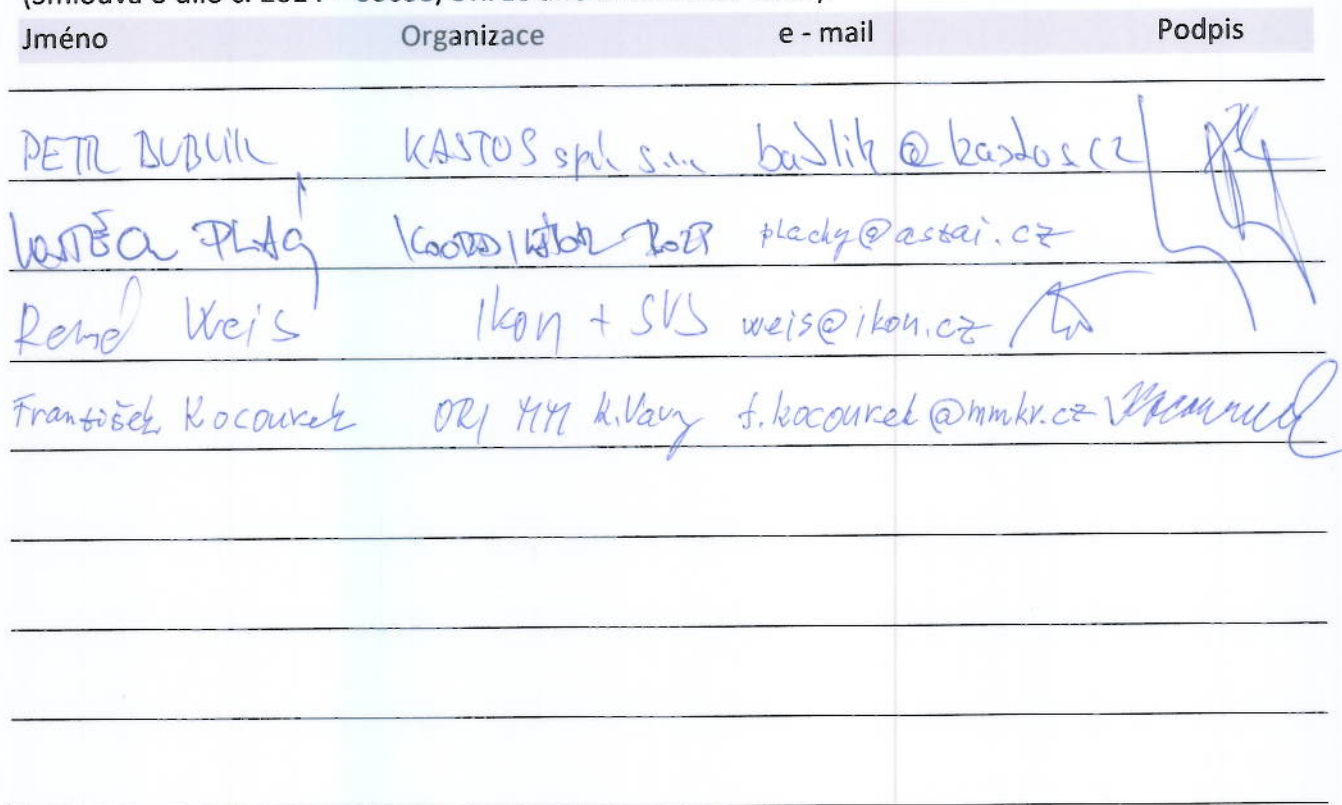 Jméno Organizace e - mail Podpis
PETR BUBLIK KASTOS spol. s.r.o.
PLACHÝ KOORDINÁTOR BOZP plachy@astai.cz
René Weis Ikon + SVS weis@ikon.cz
František Kocourek ORI MM K.Vary f.kocourek@mmkv.cz